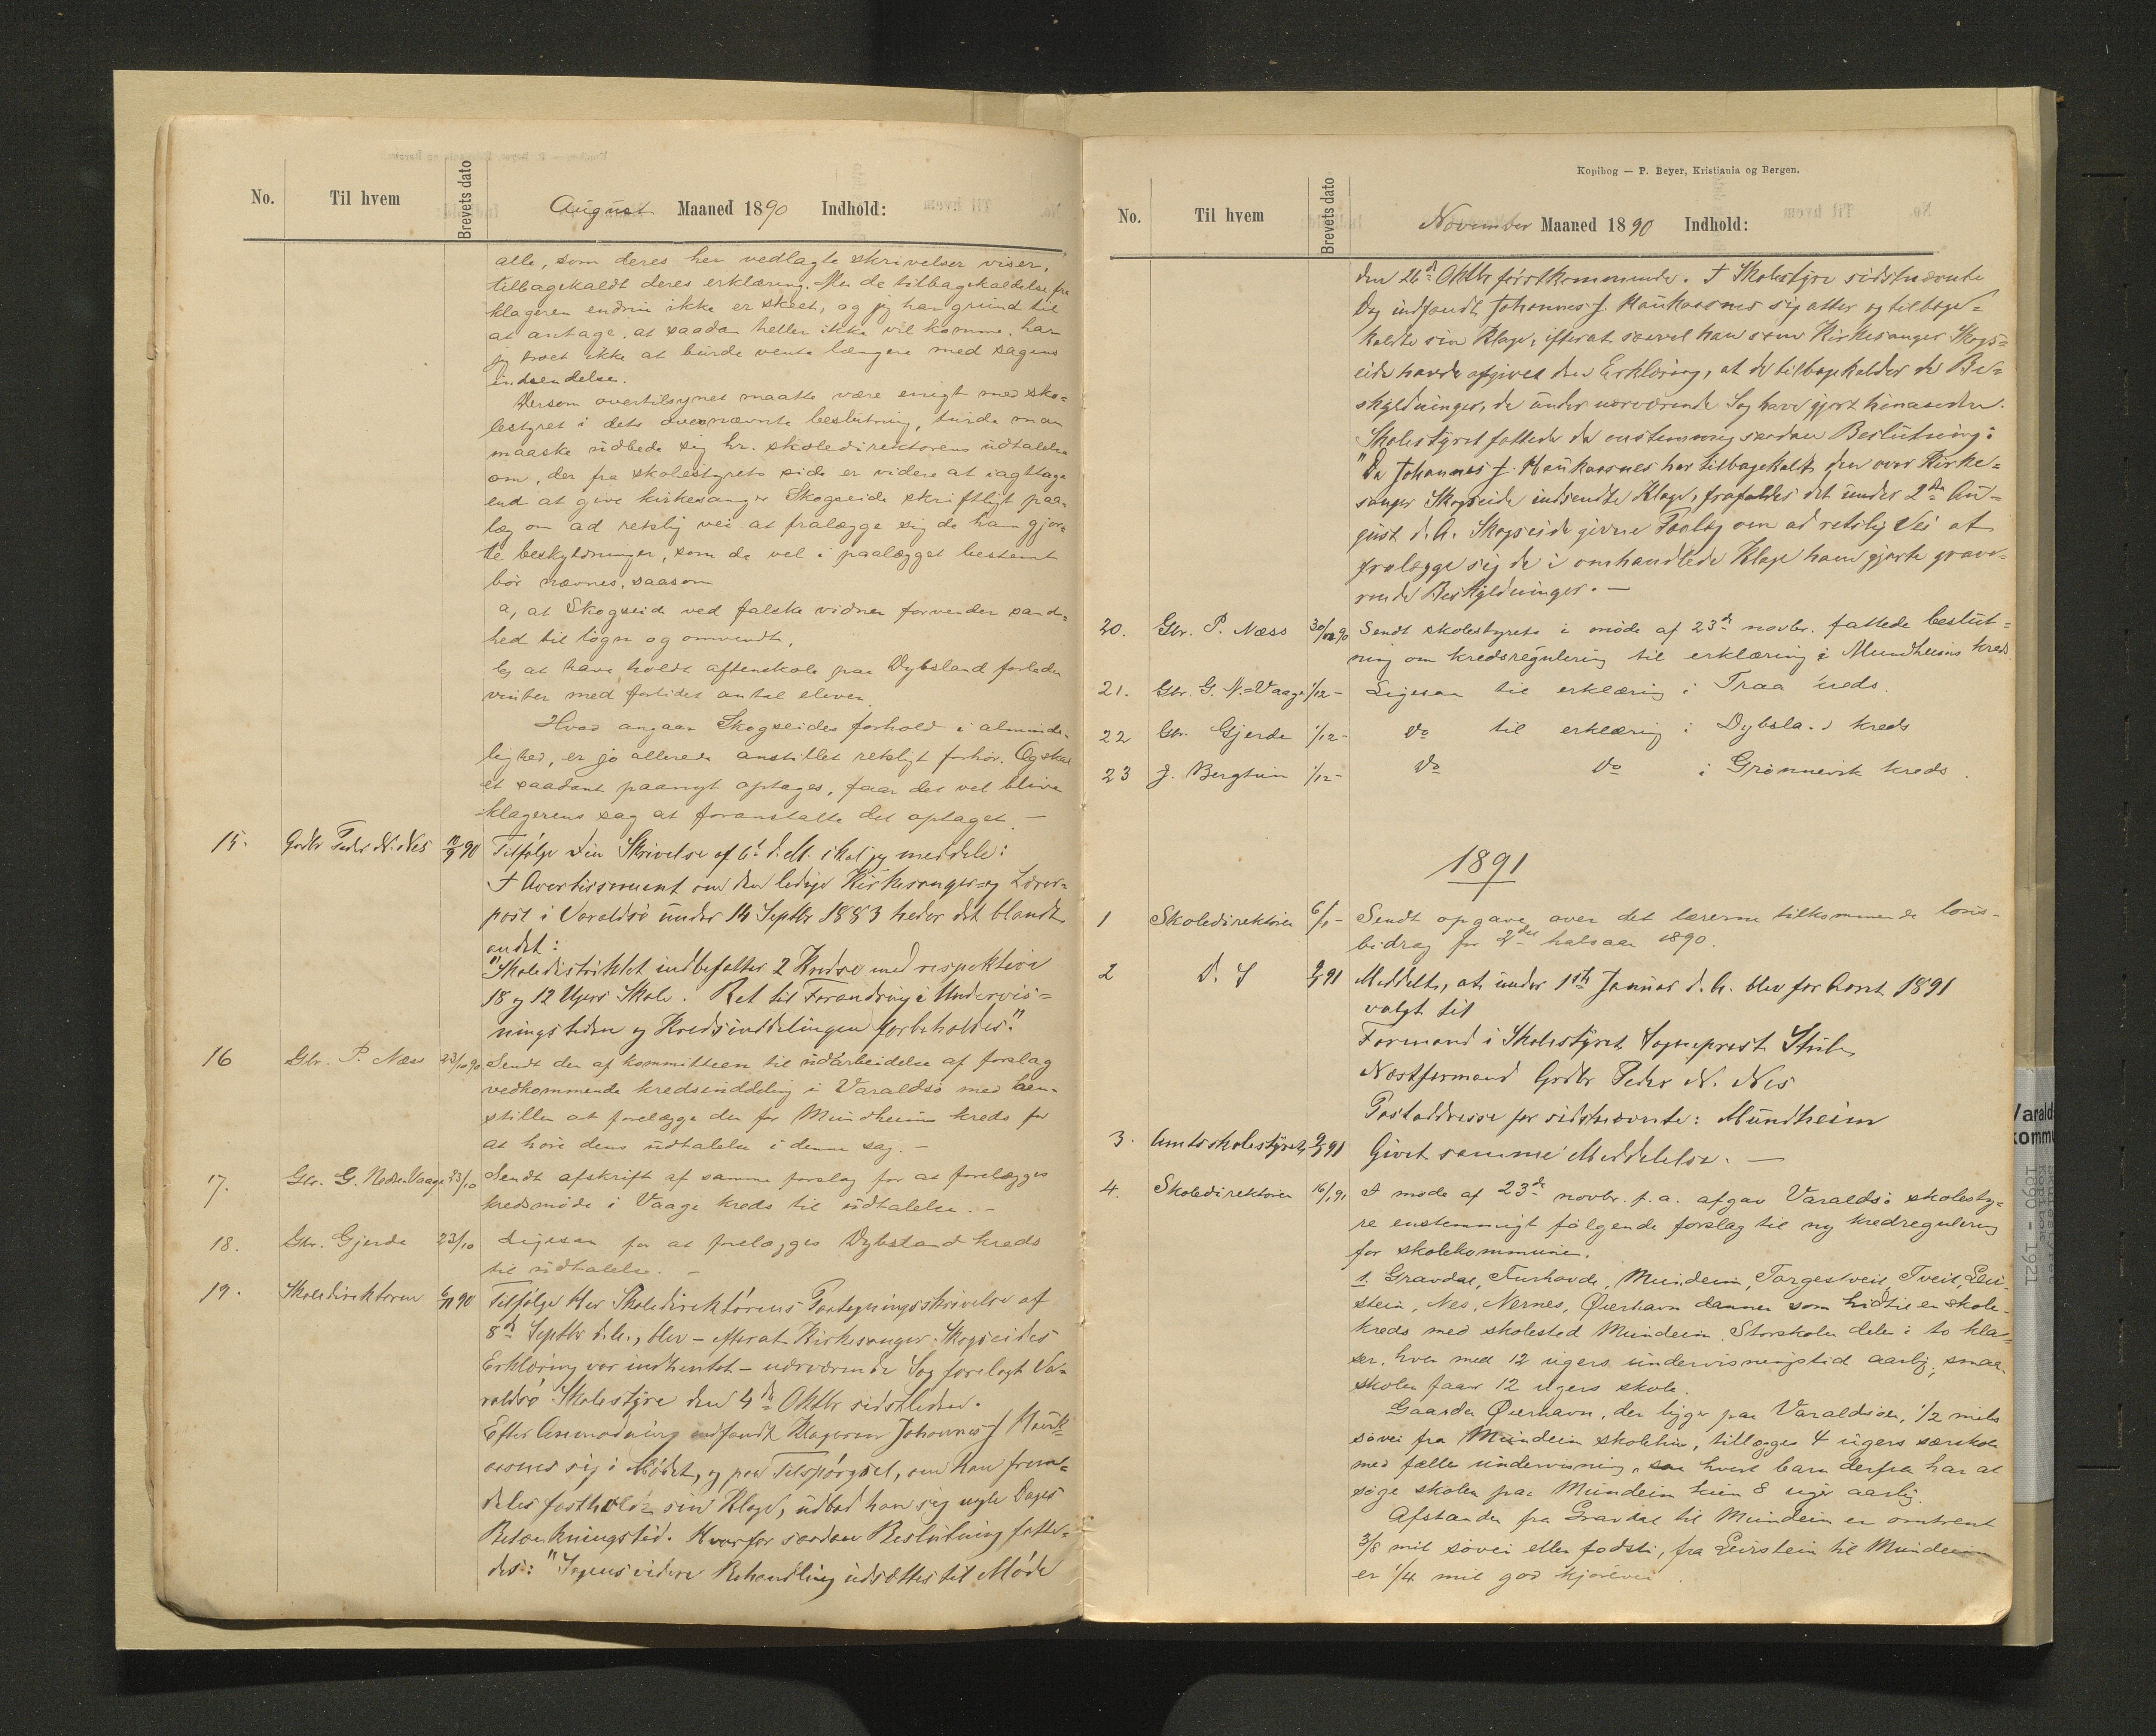 No.
Til hvem
Brevets dato
August Maaned 1890 Indhold:
alle, som deres her vedlagte skrivelser viser,
tilbagekaldt deres erklæring. Men da tilbagekaldelse fra
klageren endnu ikke er skeet, og jeg har grund til
at antage, at saadan heller ikke vil komme, har
jeg troet ikke at burde vente længere med sagens
indsendelse.
Dersom overtilsynet maatte være enigt med sko=
lestyret i dets ovennævnte beslutning, turde man
maaske udbede sig hr. skoledirektorens udtalelse
om, der fra skolestyrets side er videre at iagttage
end at give kirkesanger Skogseide skriftligt paa-
læg om ad retslig vei at fralægge sig de ham gjor-
te beskyldninger, som da vel i paalægget bestemt
bør nævnes, saasom
a, at Skogseide ved falske vidner forvender sand-
hed til løgn og omvendt,
b, at have holdt aftenskole paa Dybsland forleden
vinter med forlidet antal elever.
Hvad angaar Skogseides forhold i alminde-
lighed, er jo allerede anstillet retsligt forhør. Og skal
et saadant paanyt optages, faar det vel blive
klagerens sag at foranstalte det optaget. —
15. Grdbr Peder N. Nes 10/9 90 Tilfølge Din Skrivelse af 6te d.M. skal jeg meddele:
I Avertissement om den ledige Kirkesanger- og Lærer=
post i Varaldsø under 14 Septbr 1883 heder det blandt
andet:
"Skoledistriktet indbefatter 2 Kredse med respektive
18 og 12 Ugers Skole. Ret til Forandring i Undervis=
ningstiden og Kredsinddelingen forbeholdes."
16 Gbr. P. Næss 23/10 90 Sendt den af kommitteen til udarbeidelse af forslag
vedkommende kredsinddeling i Varaldsø med hen-
stillen at forelægge den for Mundheims kreds for
at høre dens udtalelse i denne sag. —
17. Gbr. G. Nedre Vaage 23/10 Sendt afskrift af samme forslag for at forelægges
kredsmøde i Vaage kreds til udtalelse. —
18. Gbr. Gjerde 23/10 Ligesaa for at forelægges Dybsland kreds
til udtalelse. —
19. Skoledirektøren 6/11 90 Tilfølge Her Skoledirektørens Paategningsskrivelse af
8de Septbr d.A., blev – efterat Kirkesanger Skogseides
Erklæring var indhentet – nærværende Sag forelagt Va-
raldsø Skolestyre den 4de Oktbr sidstleden.
Efter Anmodning indfandt Klageren Johannes J. Hauk=
aasnes sig i Mødet, og paa Tilspørgsel, om han frem=
deles fastholdt sin Klage, udbad han sig nogle Dages
Betænkningstid. Hvorfor saadan Beslutning fatte=
des: "Sagens videre Behandling udsættes til Møde
Kopibog — P. Beyer, Kristiania og Bergen.
No.
Til hvem
Brevets dato
November Maaned 1890 Indhold:
den 26de Oktbr førstkommende. I Skolestyre sidstnævnte
Dag indfandt Johannes J. Haukaasnes sig atter og tilbage=
kaldte sin Klage, efterat saavel han som Kirkesanger Skogs=
eide havde afgivet den Erklæring, at de tilbagekalder de Be=
skyldninger, de under nærværende Sag have gjort hinanden.
Skolestyret fattede da enstemmig saadan Beslutning:
"Da Johannes J. Haukaasnes har tilbagekaldt den over Kirke=
sanger Skogseide indsendte Klage, frafaldes det under 2den Au=
gust d.A. Skogseide givne Paalæg om ad retslig Vei at
fralægge sig de i omhandlede Klage ham gjorte grave-
rende Beskyldninger. —
20. Gbr. P. Næss 30/11 90 Sendt skolestyrets i møde af 23de novbr. fattede beslut=
ning om kredsregulering til erklæring i Mundheims kreds.
21. Gbr. G. N. Vaage 1/12 – Ligesaa til erklæring i Traa kreds.
22 Gbr. Gjerde 1/12 – do til erklæring i Dybsland kreds
23 J. Bergtun 1/12 – do do i Grønnevik kreds.
1891
1 Skoledirektøren 6/1 – Sendt opgave over det lærerne tilkommende løns-
bidrag for 2det halvaar 1890.
2 D. S 9/1 91 Meddelt, at under 1ste Januar d.A. blev for Aaret 1891
valgt til
Formand i Skolestyret Sogneprest Stub,
Næstformand Grdbr Peder N. Nes
Postaddresse for sidstnævnte: Mundheim
3. Amtsskolestyret 9/1 91 Givet samme Meddelelse. —
4. Skoledirektøren 16/1 91 I møde af 23de novbr. f.a. afgav Varaldsø skolesty=
re enstemmigt følgende forslag til ny kredsregulering
for skolekommunen.
1. Gravdal, Furhovde, Mundeim, Torgestveit, Tveit, Lei-
stein, Nes, Nernes, Øierhavn danner som hidtil en skole-
kreds med skolested Mundeim. Storskolen deles i to klas-
ser, hver med 12 ugers undervisningstid aarlig, smaa-
skolen faar 12 ugers skole.
Gaarden Øierhavn, der ligger paa Varaldsøen, 1/2 mils
søvei fra Mundeim skolehus, tillægges 4 ugers særskole
med fælles undervisning, saa hvert barn derfra har at
søge skolen paa Mundeim kun 8 uger aarlig.
Afstanden fra Gravdal til Mundeim er omtrent
3/8 mil søvei eller fodsti, fra Leirstein til Mundeim
er 1/4 mil god kjørevei.